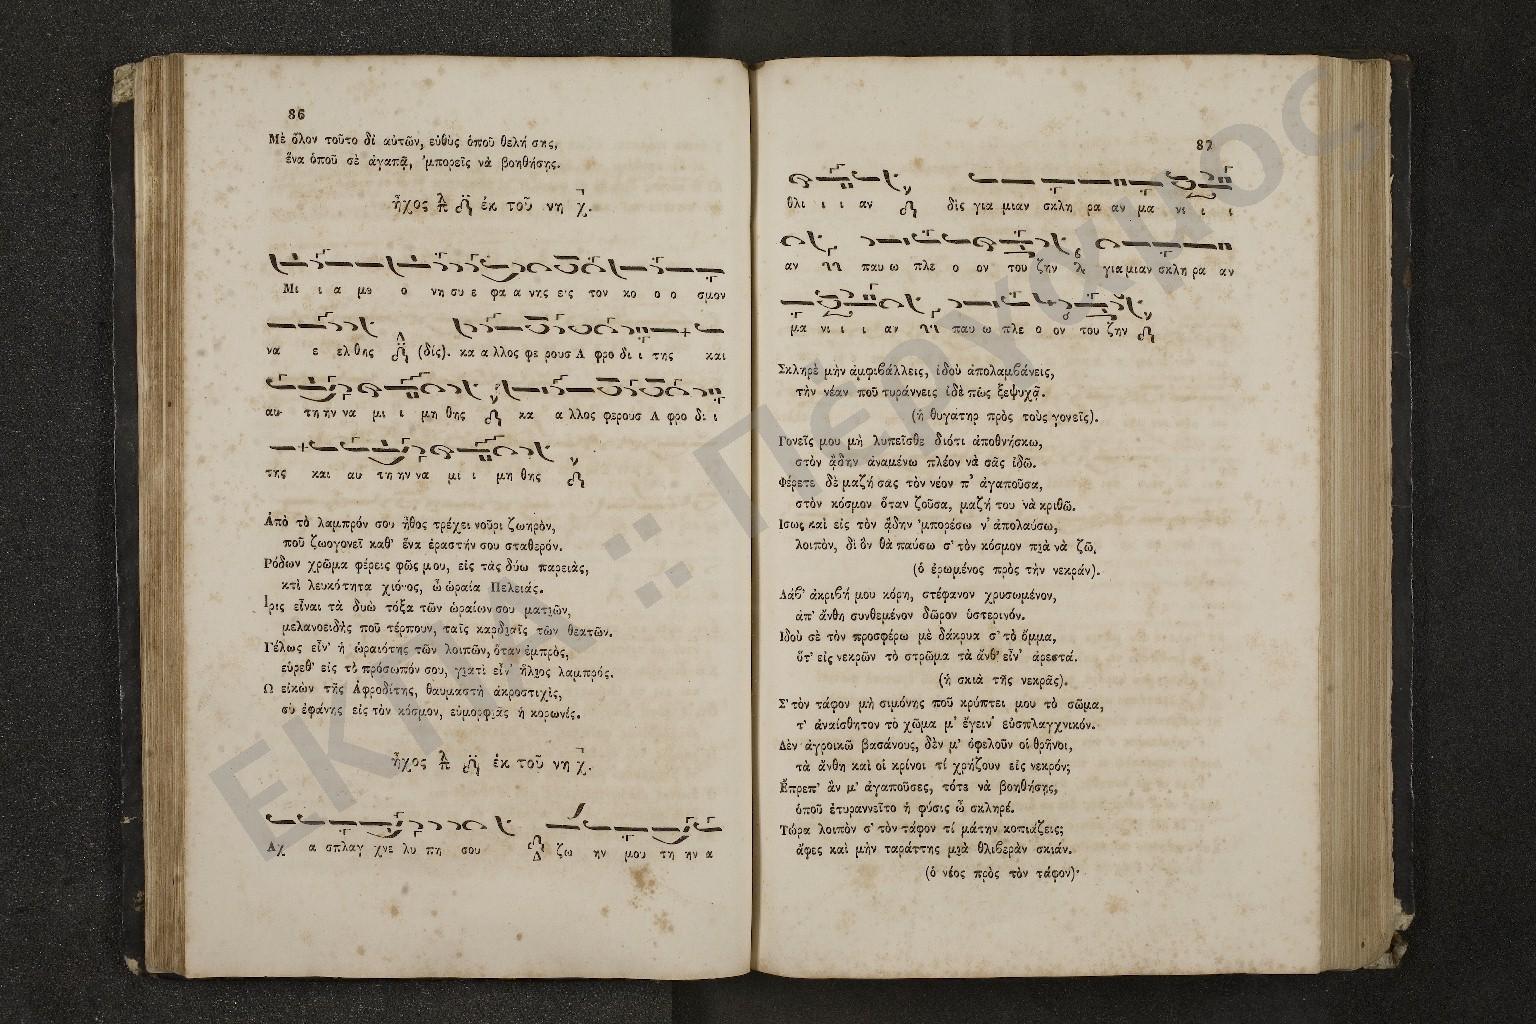 86
Μὲ ὅλον τοῦτο δἰ αὐτῶν, εὐθὺς ὁποῦ θελή σῃς,
ἕνα ὁποῦ σὲ ἀγαπᾷ, 'μπορεῖς νὰ βοηθήσῃς.
ἦχος ἐκ τοῦ νη χ.
Μι ι α με ο νη συ ε φα α νης εις τον κο ο ο σμον
να ε ελ θης (δίς). κα α λλος φε ρουσ Α φρο δι ι της και
αυ τη ην να μι ι μη θης κα α λλος φερουσ Α φρο δι ι
της και αυ τη ην να μι ι μη θης
Ἀπὸ τὸ λαμπρόν σου ἦθος τρέχει νοῦρι ζωηρὸν,
ποῦ ζωογονεῖ καθ' ἕνα ἐραστήν σου σταθερόν.
Ρόδων χρῶμα φέρεις φῶς μου, εἰς τὰς δύω παρειὰς,
κτὶ λευκότητα χιόνος, ὦ ὡραία Πελειάς.
Ἶρις εἶναι τὰ δυὼ τόξα τῶν ὡραίων σου ματιῶν,
μελανοειδῆς ποῦ τέρπουν, ταῖς καρδιαῖς τῶν θεατῶν.
Γέλως εἶν' ἡ ὡραιότης τῶν λοιπῶν, ὅταν ἐμπρὸς,
εὑρεθ' εἰς τὸ πρόσωπόν σου, γιατὶ εἶν' ἥλιος λαμπρός.
Ω εἰκὼν τῆς Ἀφροδίτης, θαυμαστὴ ἀκροστιχὶς,
σὺ ἐφάνης εἰς τὸν κόσμον, εὐμορφιᾶς ἡ κορωνίς.
ἦχος ἐκ τοῦ νη χ.
Αχ α σπλαγ χνε λυ πη σου ζω ην μου τη ην α
87
θλι ι ι αν δὶς για μιαν σκλη ρα αν μα νι ι ι
αν παυ ω πλε ο ον του ζην για μιαν σκλη ρα αν
μα νι ι ι αν παυ ω πλε ο ον του ζην
Σκληρὲ μὴν ἀμφιβάλλεις, ἰδοὺ ἀπολαμβάνεις,
τὴν νέαν ποῦ τυράννεις ἰδὲ πῶς ξεψυχᾷ.
(ἡ θυγατηρ πρὸς τοὺς γονεῖς).
Γονεῖς μου μὴ λυπεῖσθε διότι ἀποθνήσκω,
στὸν ᾅδην ἀναμένω πλέον νὰ σᾶς ἰδῶ.
Φέρετε δὲ μαζή σας τὸν νέον π' ἀγαποῦσα,
στὸν κόσμον ὅταν ζοῦσα, μαζή του νὰ κριθῶ.
Ισως καὶ εἰς τὸν ᾅδην 'μπορέσω ν' ἀπολαύσω,
λοιπὸν, δι ὃν θὰ παύσω σ' τὸν κόσμον πιὰ νὰ ζῶ.
(ὁ ἐρωμένος πρὸς τὴν νεκράν).
Λάβ' ἀκριβή μου κόρη, στέφανον χρυσωμένον,
ἀπ' ἄνθη συνθεμένον δῶρον ὑστερινόν.
Ιδοὺ σὲ τὸν προσφέρω μὲ δάκρυα σ' τὸ ὄμμα,
ὅτ' εἰς νεκρῶν τὸ στρῶμα τὰ ἄνθ' εἶν' ἀρεστά.
(ἡ σκιὰ τῆς νεκρᾶς).
Σ' τὸν τάφον μὴ σιμόνῃς ποῦ κρύπτει μου τὸ σῶμα,
τ' ἀναίσθητον τὸ χῶμα μ' ἔγειν' εὐσπλαγχνικόν.
Δὲν ἀγροικῶ βασάνους, δὲν μ' ὀφελοῦν οἱ θρῆνοι,
τὰ ἄνθη καὶ οἱ κρίνοι τί χρήζουν εἰς νεκρόν;
Ἔπρεπ' ἂν μ' ἀγαποῦσες, τότε νὰ βοηθήσῃς,
ὁποῦ ἐτυραννεῖτο ἡ φύσις ὦ σκληρέ.
Τώρα λοιπὸν σ' τὸν τάφον τί μάτην κοπιάζεις;
ἄφες καὶ μὴν ταράττῃς μιὰ θλιβερὰν σκιάν.
(ὁ νέος πρὸς τὸν τάφον)·
ΕΚΠΑ :: Πέργαμος